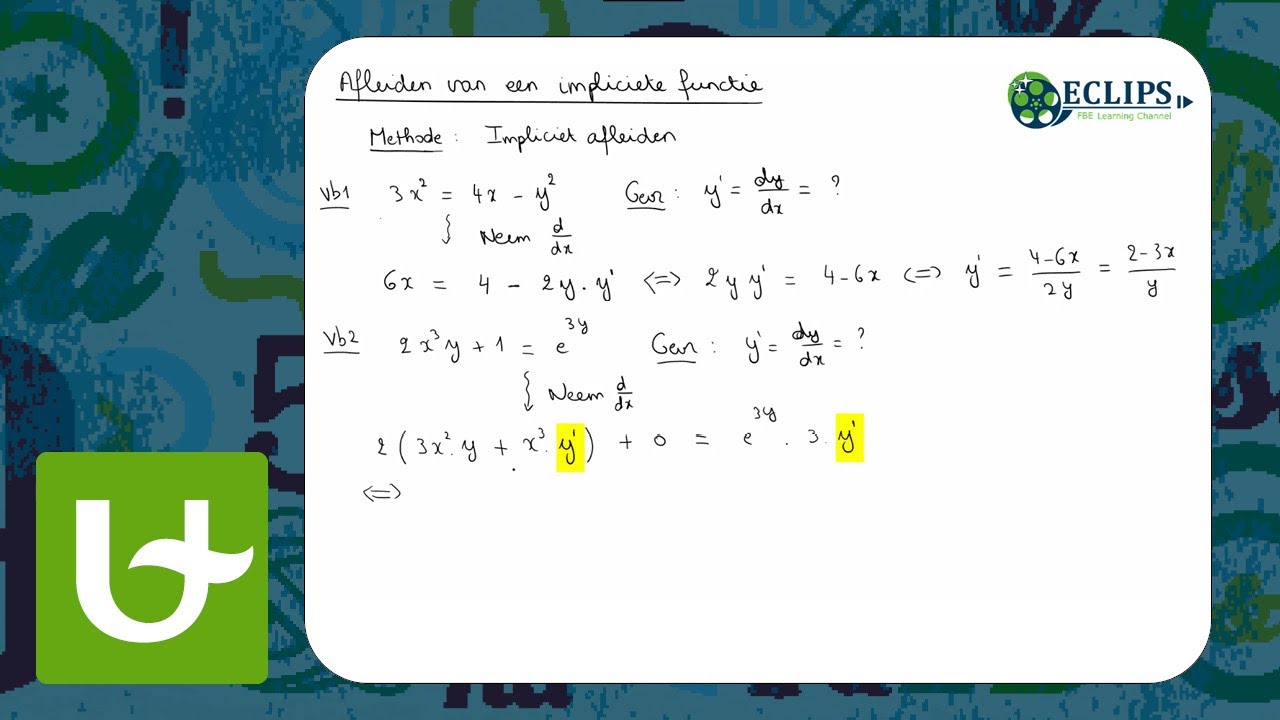 Afleiden van een impliciete functie
ECLIPS
FBE Learning Channel
Methode : Impliciet afleiden
Vb1 3x² = 4x - y² Gevr : y' = dy/dx = ?
Neem d/dx
6x = 4 - 2y . y' <=> 2 y y' = 4-6x <=> y' = 4-6x/2y = 2-3x/y
Vb2 2x³y + 1 = e^3y Gevr : y' = dy/dx = ?
Neem d/dx
2 ( 3x² . y + x³ . y' ) + 0 = e^3y . 3 . y'
<=>